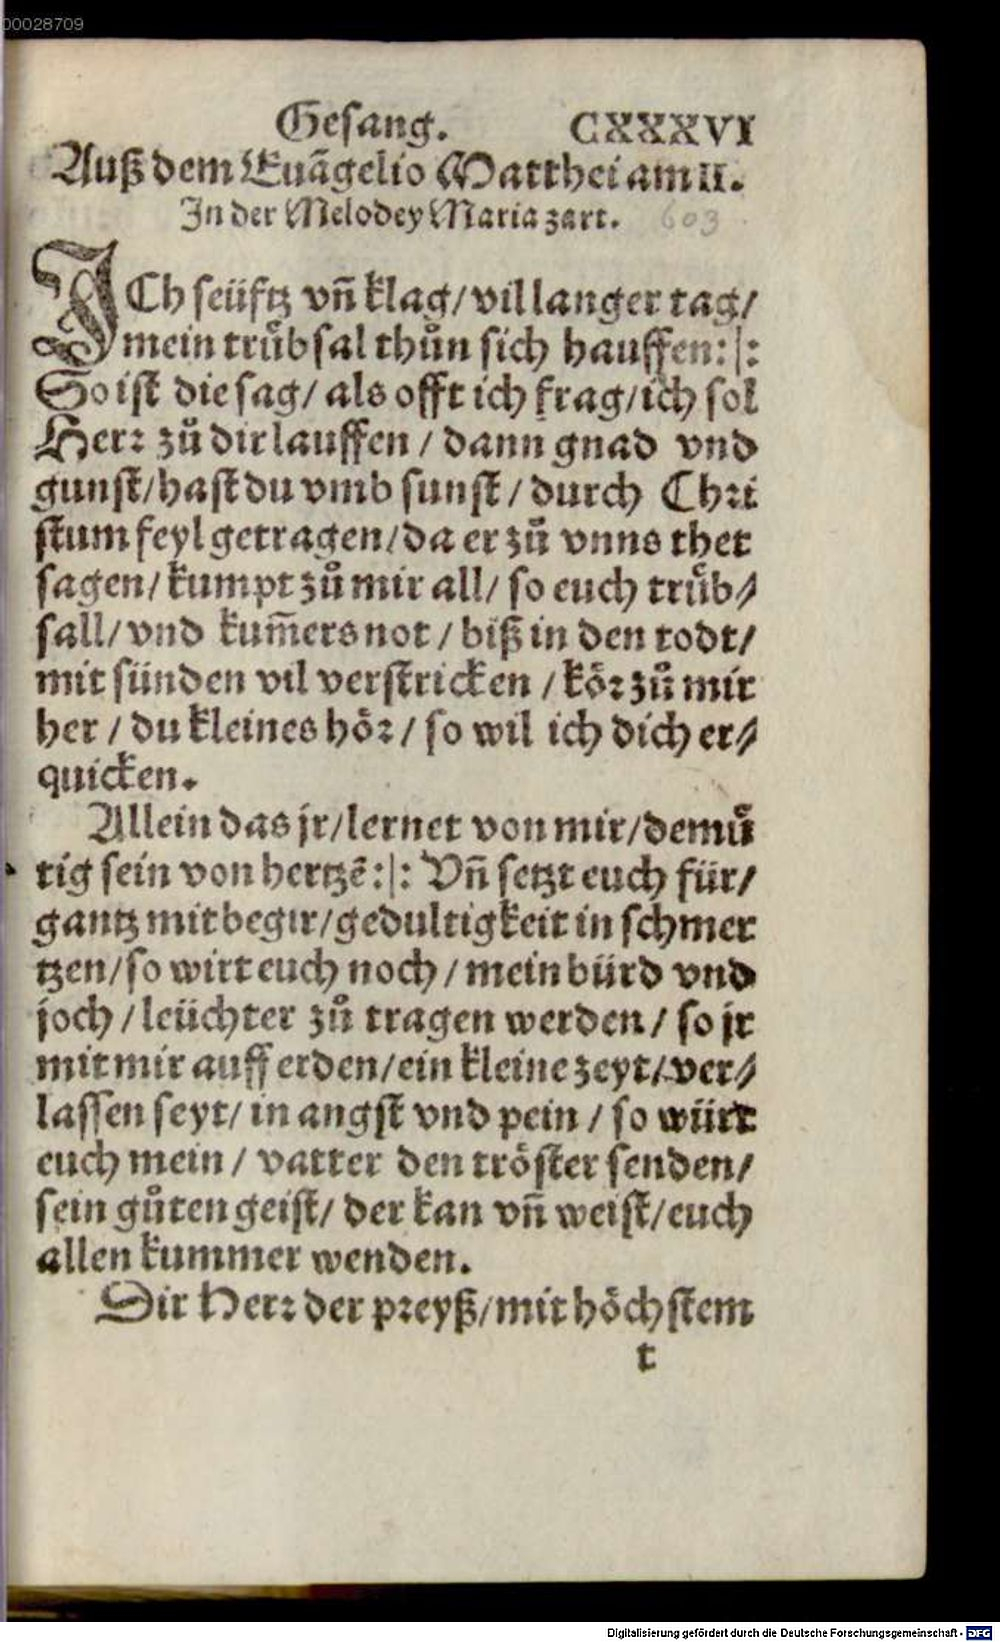 00028709
Gesang. CXXXVI
Auß dem Euãgelio Matthei am II.
In der Melodey Maria zart. 603
ICh seüftz vñ klag/ vil langer tag/
mein trůbsal thůn sich hauffen:|:
So ist die sag/ als offt ich frag/ ich sol
Herꝛ zů dir lauffen / dann gnad vnd
gunst/ hast du vmb sunst / durch Chꝛi
stum feyl getragen/ da er zů vnns thet
sagen/ kumpt zů mir all/ so euch trůb⸗
sall/ vnd kum̃ers not / biß in den todt/
mit sünden vil verstricken / köꝛ zů mir
her / du kleines höꝛ / so wil ich dich er⸗
quicken.
Allein das jr/ lernet von mir/ demů
tig sein von hertzẽ:|: Vñ setzt euch für/
gantz mit begir/ gedultigkeit in schmer
tzen/ so wirt euch noch / mein bürd vnd
joch / leüchter zů tragen werden / so jr
mit mir auff erden/ ein kleine zeyt/ ver⸗
lassen seyt/ in angst vnd pein / so würt
euch mein / vatter den tröster senden/
sein gůten geist/ der kan vñ weist/ euch
allen kummer wenden.
Dir Herꝛ der pꝛeyß/ mit höchstem
t
Digitalisierung gefördert durch die Deutsche Forschungsgemeinschaft - DFG